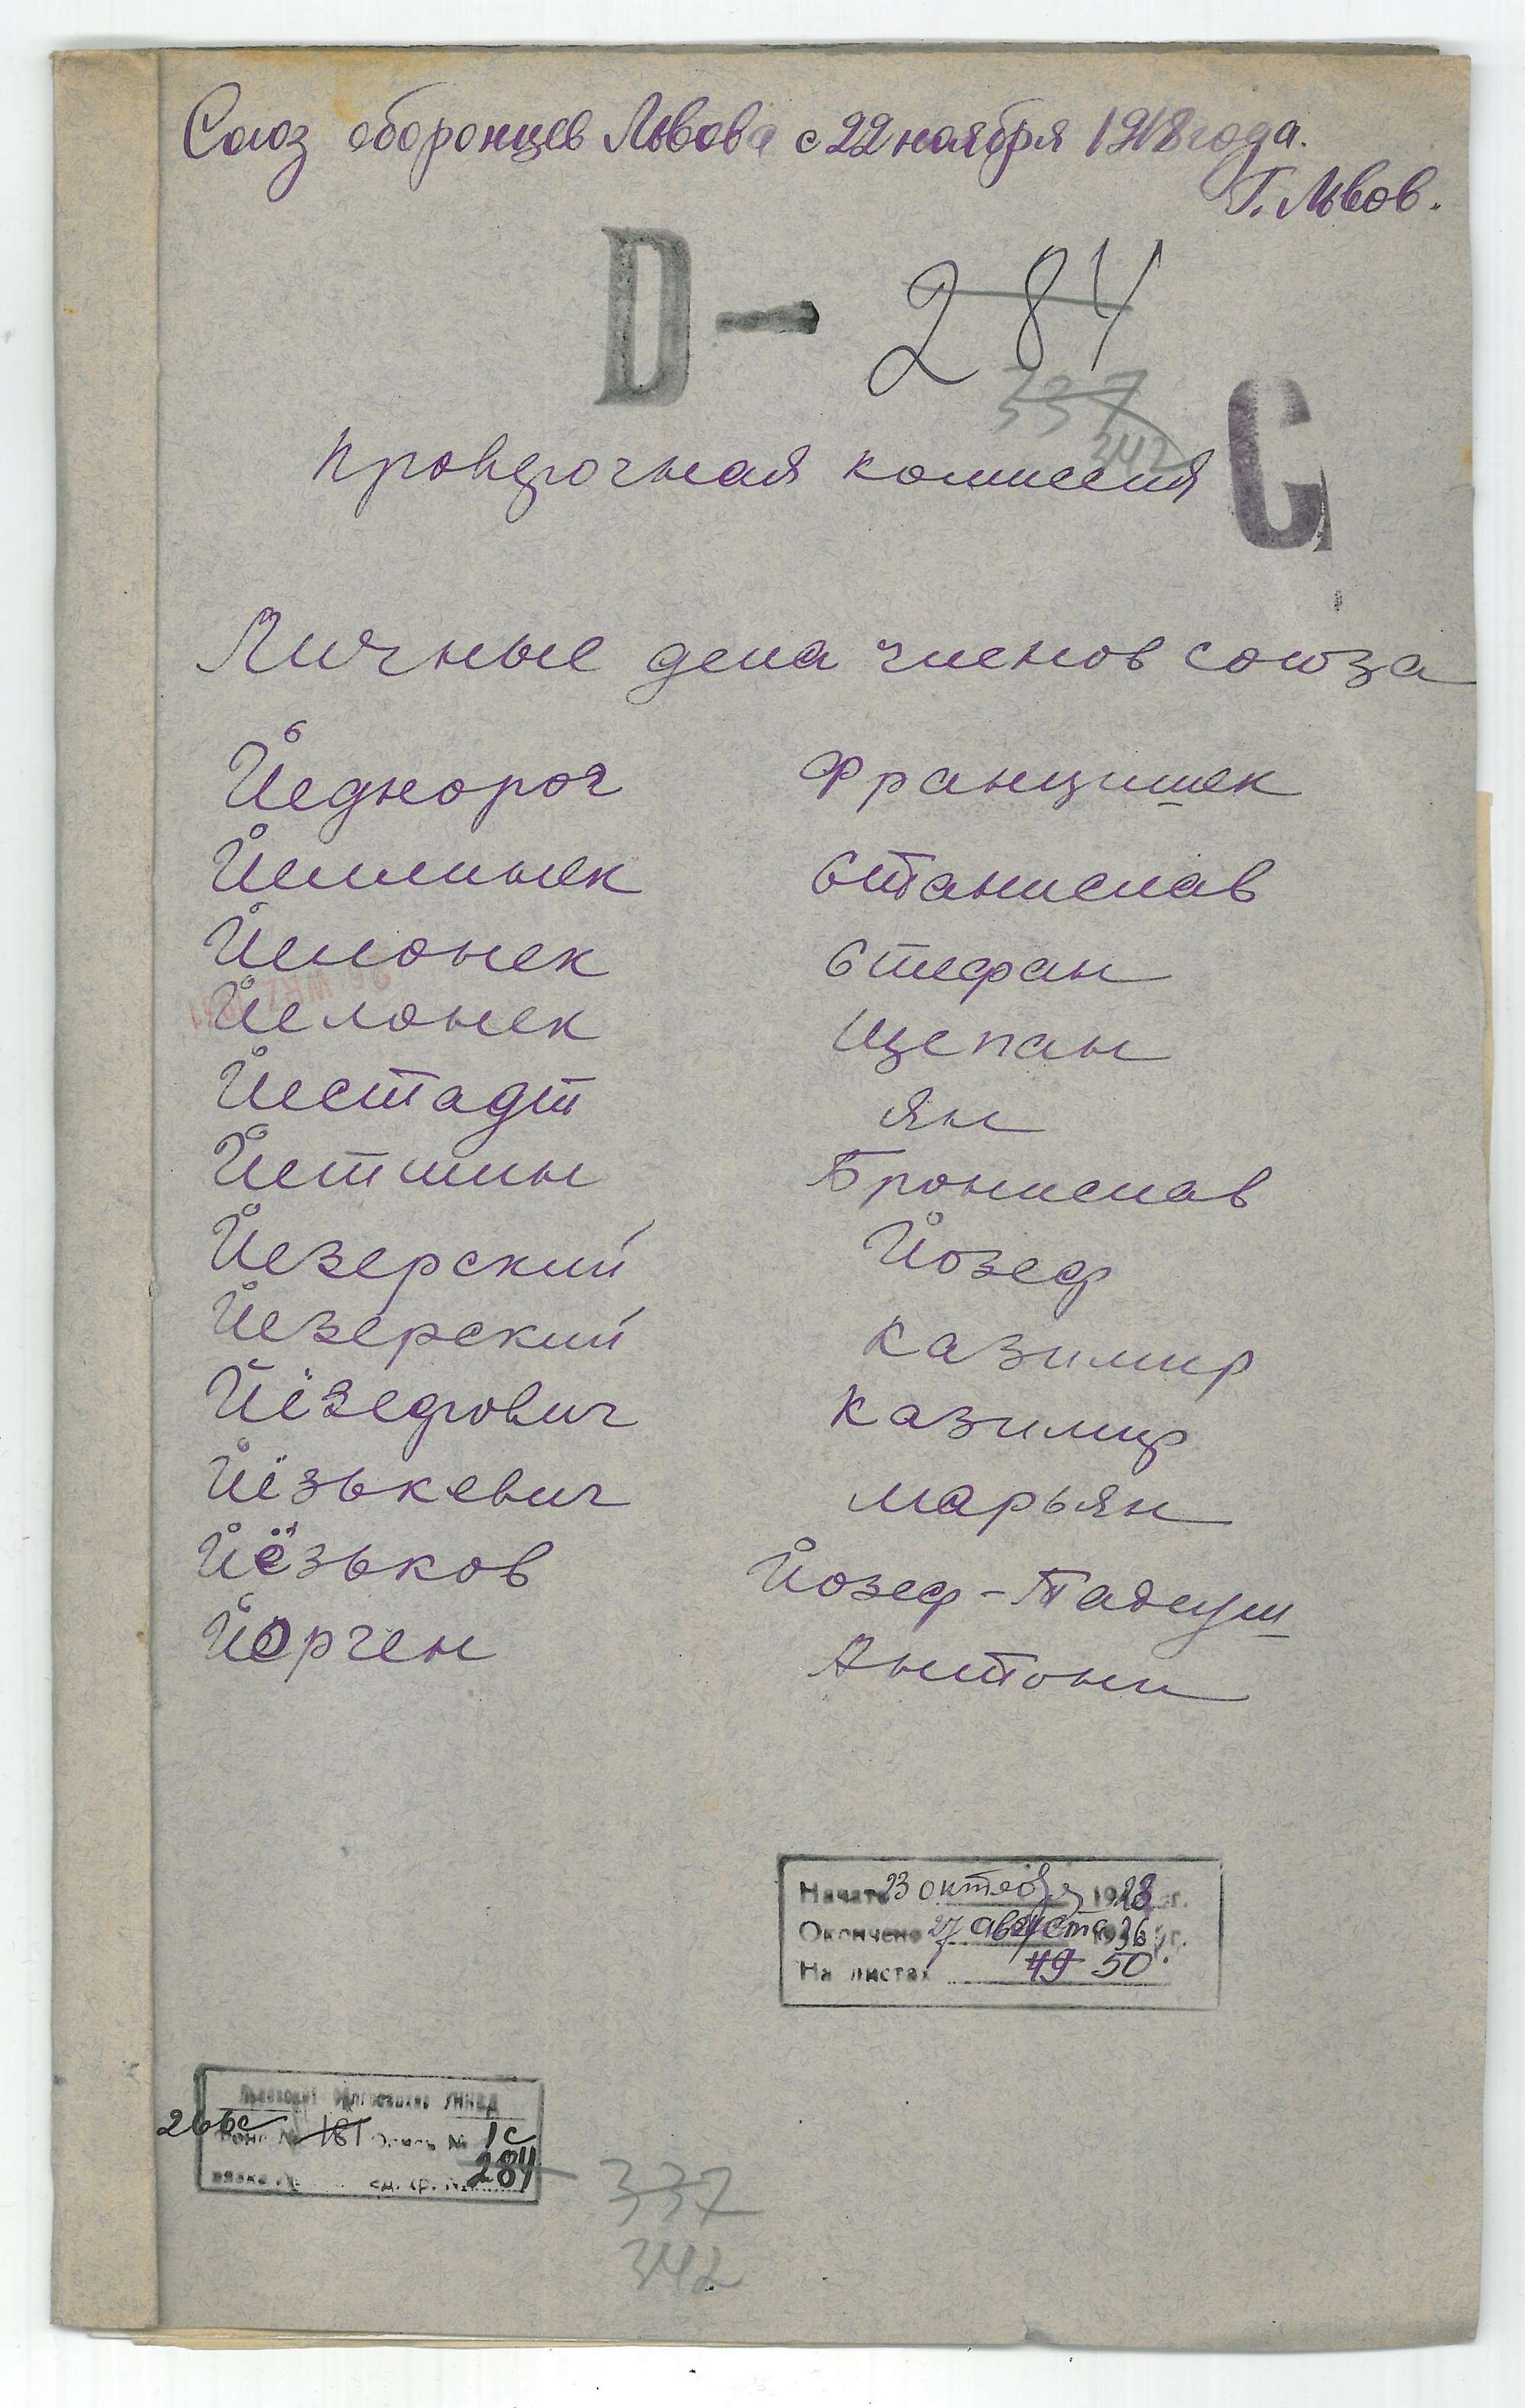 Союз оборонцев Львова с 22 ноября 1918 года.
Г. Львов.
D — 284
337
342
С
Проверочная комиссия
Личные дела членов союза
Йеднорог Францишек
Йелинек Станислав
Йелонек Стефан
Йелонек Щепан
Йестадт Ян
Йетшин Бронислав
Йезерский Йозеф
Йезерский Казимир
Йёзефович Казимир
Йёзькевич Марьян
Йёзьков Йозеф-Тадеуш
Йорген Антони
Начато 23 октября 1928 г.
Окончено 27 августа 1936 г.
На листах 49 50
УНКВД
266с Фонд № 181 Опись № 1с
вязка № ед. хр. № 284
337
342